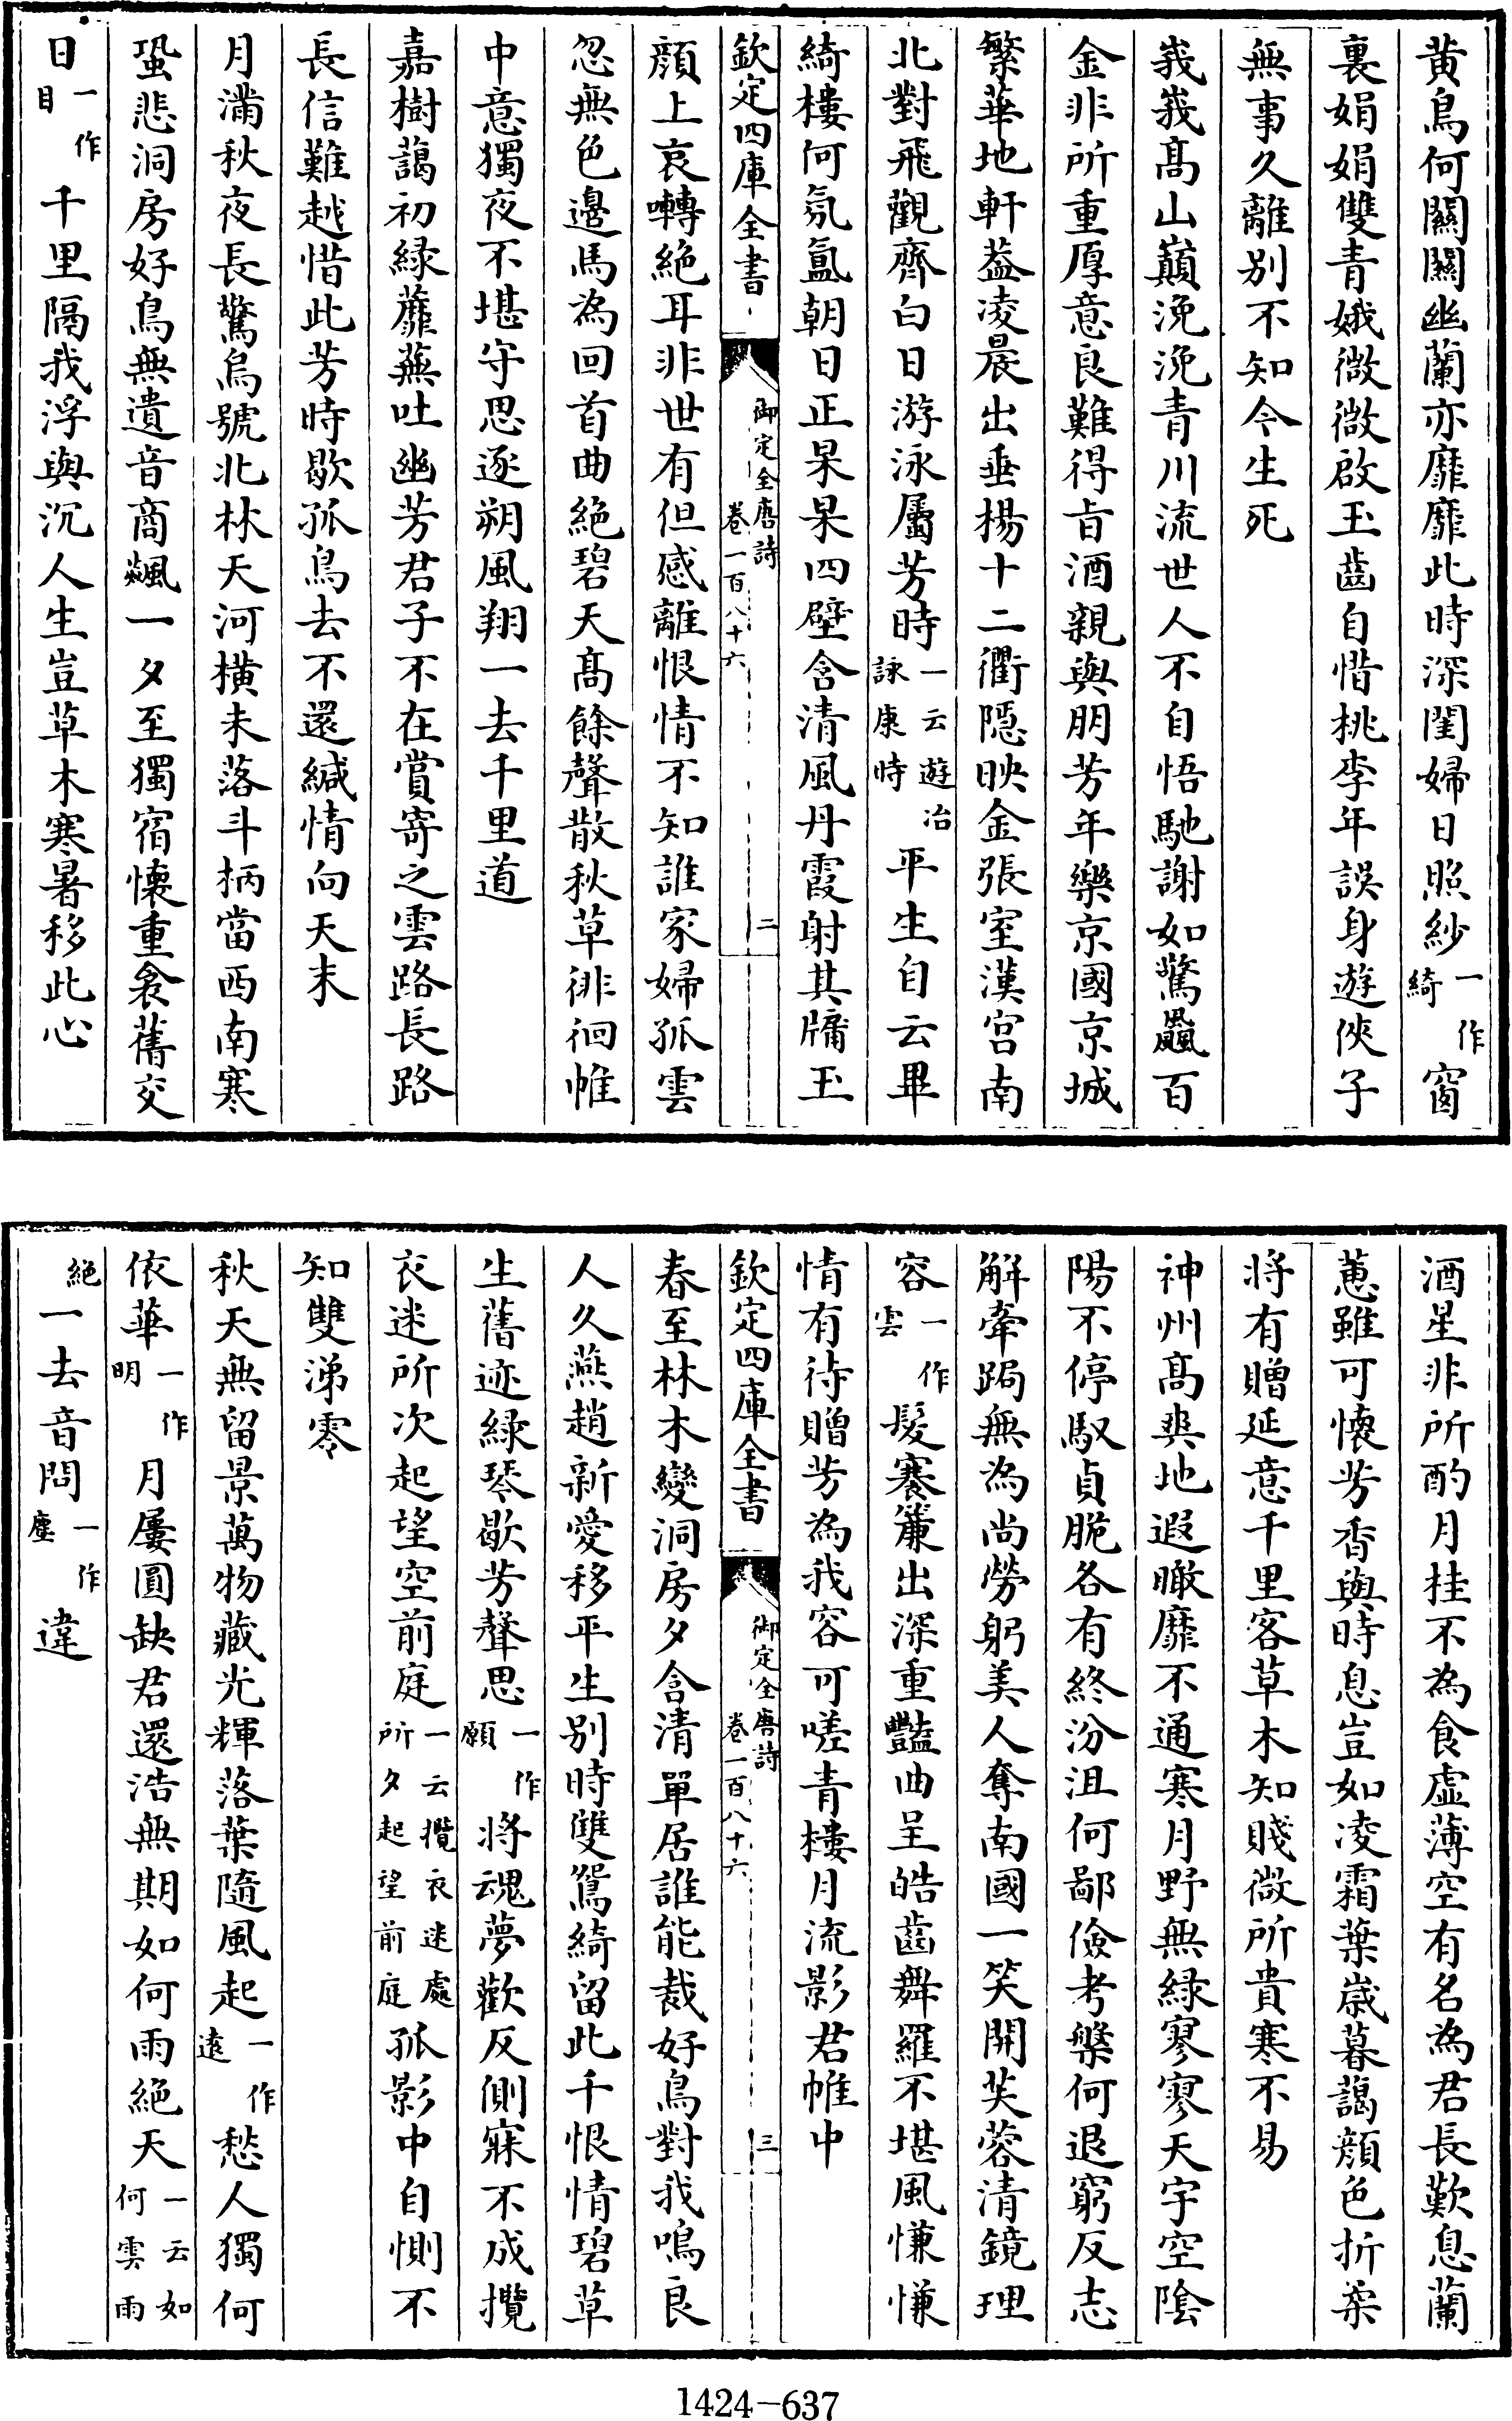 黄鳥何關關幽蘭亦靡靡此時深閨婦日照紗一作綺窗
裏娟娟雙青娥微微啟玉齒自惜桃李年誤身遊俠子
無事久離别不知今生死
峩峩髙山巔浼浼青川流世人不自悟馳謝如驚飈百
金非所重厚意良難得㫖酒親與朋芳年樂京國京城
繁華地軒葢凌晨出垂楊十二衢隱映金張室漢宫南
北對飛觀齊白日游泳屬芳時一云遊冶詠康時平生自云畢
綺樓何氛氲朝日正杲杲四壁含清風丹霞射其牖玉
欽定四庫全書 御定全唐詩 卷一百八十六 二
顔上哀囀絶耳非世有但感離恨情不知誰家婦孤雲
忽無色邉馬為回首曲絶碧天髙餘聲散秋草徘徊帷
中意獨夜不堪守思逐朔風翔一去千里道
嘉樹藹初緑蘼蕪吐幽芳君子不在賞寄之雲路長路
長信難越惜此芳時歇孤鳥去不還緘情向天末
月滿秋夜長驚烏號北林天河橫未落斗柄當西南寒
蛩悲洞房好鳥無遺音商飈一夕至獨宿懷重衾舊交
日一作目千里隔我浮與沉人生豈草木寒暑移此心
酒星非所酌月桂不為食虚薄空有名為君長歎息蘭
蕙雖可懷芳香與時息豈如凌霜葉嵗暮藹顔色折柔
将有贈延意千里客草木知賤微所貴寒不易
神州髙爽地遐瞰靡不通寒月野無緑寥寥天宇空隂
陽不停馭貞脆各有終汾沮何鄙儉考槃何退窮反志
解牽跼無為尚勞躬美人奪南國一笑開芙蓉清鏡理
容一作雲髮褰簾出深重豔曲呈皓齒舞羅不堪風慊慊
情有待贈芳為我容可嗟青樓月流影君帷中
欽定四庫全書 御定全唐詩 卷一百八十六 三
春至林木變洞房夕含清單居誰能裁好鳥對我鳴良
人久燕趙新愛移平生别時雙鴛綺留此千恨情碧草
生舊迹緑琴歇芳聲思一作願将魂夢歡反側寐不成攬
衣迷所次起望空前庭一云攬衣迷處所夕起望前庭孤影中自惻不
知雙涕零
秋天無留景萬物藏光輝落葉隨風起一作遠愁人獨何
依華一作明月屢圓缺君還浩無期如何雨絶天一云如何雲雨
絶一去音問一作塵違
1424—637